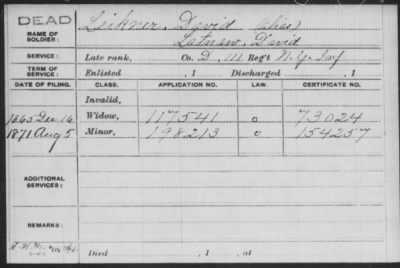 DEAD
NAME OF SOLDIER:
Leihner, David (alias)
Latnaw, David
SERVICE:
Late rank, Co. D, 111 Reg't N.Y. Inf
TERM OF SERVICE:
Enlisted , 1 Discharged , 1
DATE OF FILING. CLASS. APPLICATION NO. LAW. CERTIFICATE NO.
Invalid,
1865 Dec 16 Widow, 117541 o 73024
1871 Aug 5 Minor, 198213 o 154257
ADDITIONAL SERVICES:
REMARKS:
Died , 1 , at